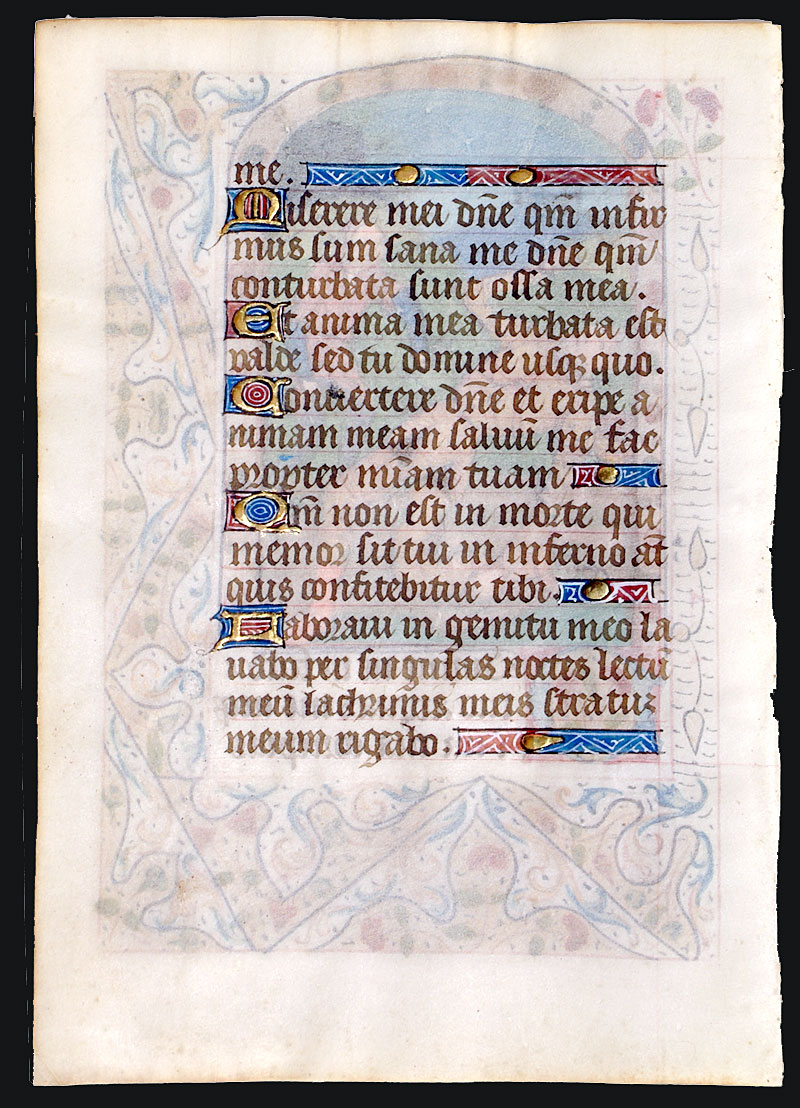 me.
Miserere mei dn̄e qm̄ infir
mus sum sana me dn̄e qm̄
conturbata sunt ossa mea.
Et anima mea turbata est
valde sed tu domine usqꝫ quo.
Convertere dn̄e et eripe a
nimam meam salvuū me fac
propter mīam tuam
Qm̄ non est in morte qui
memor sit tui in inferno aūt
quis confitebitur tibi.
Laboravi in gemitu meo la
vabo per singulas noctes lectū
meū lachrimis meis stratuꝫ
meum rigabo.